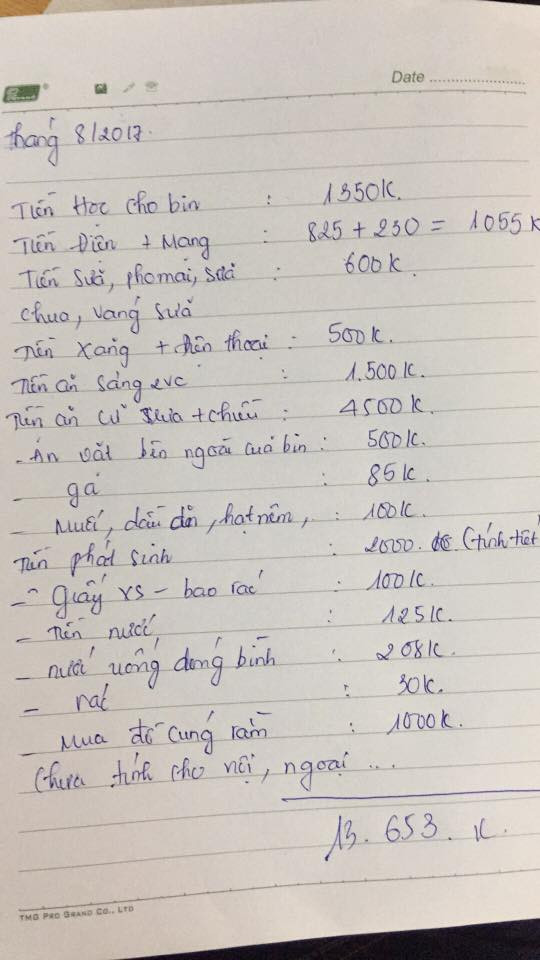 Date
tháng 8/2017.
Tiền Học cho bin : 1350K.
Tiền Điện + Mạng : 825 + 230 = 1055K
Tiền Sữa, phomai, sữa : 600K.
chua, váng sữa
Tiền Xăng + điện thoại : 500K.
Tiền ăn sáng 2vc : 1.500K.
Tiền ăn cữ trưa + chiều : 4500K.
- Ăn vặt bên ngoài của bin : 500K.
- ga : 85K.
- Muối, dầu ăn, hạt nêm, : 100K.
Tiền phát sinh : 2000. (tính tiết
- Giấy vs - bao rác : 100K.
- Tiền nước, : 125K.
- nước uống đóng bình : 208K.
- rác : 30K.
- Mua đồ cúng rằm : 1000K.
Chưa tính cho nội, ngoại ...
13. 653. K.
TMG PRO GRAND CO., LTD